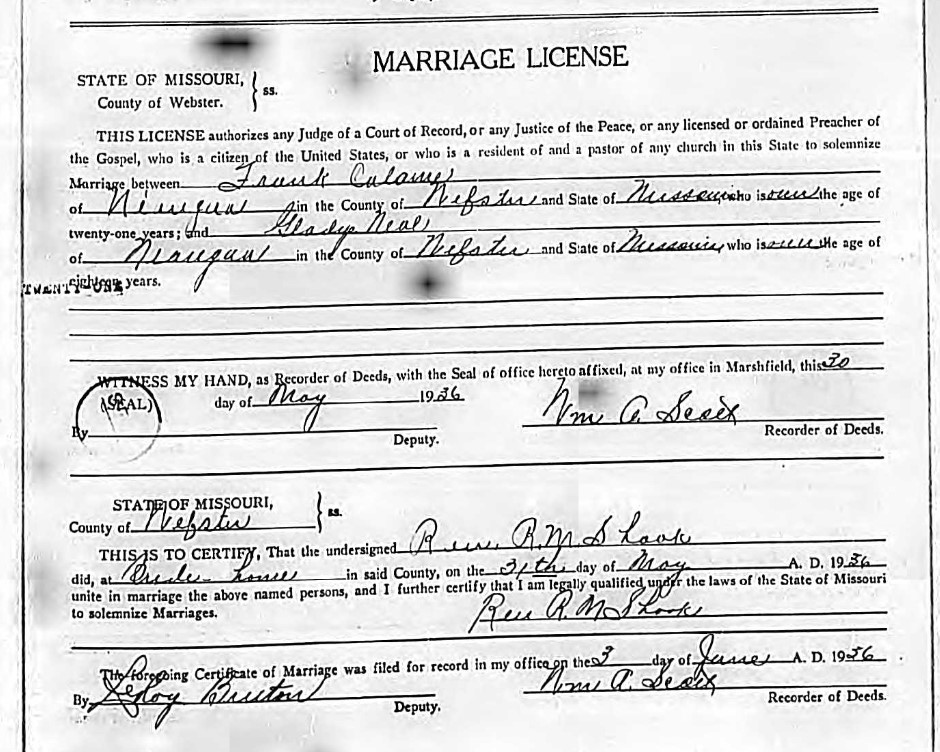 MARRIAGE LICENSE
STATE OF MISSOURI,
County of Webster. } ss.
THIS LICENSE authorizes any Judge of a Court of Record, or any Justice of the Peace, or any licensed or ordained Preacher of
the Gospel, who is a citizen of the United States, or who is a resident of and a pastor of any church in this State to solemnize
Marriage between Frank
of Niangua in the County of Webster and State of Missouri who is over the age of
twenty-one years; and Gladys Neal
of Niangua in the County of Webster and State of Missouri who is over the age of
eighteen years.
TWENTY-ONE
WITNESS MY HAND, as Recorder of Deeds, with the Seal of office hereto affixed, at my office in Marshfield, this 30
(SEAL) day of May 1936
Wm A.
By Deputy. Recorder of Deeds.
STATE OF MISSOURI,
County of Webster } ss.
THIS IS TO CERTIFY, That the undersigned Rev. R. M. Shook
did, at Brides home in said County, on the 31th day of May A. D. 1936
unite in marriage the above named persons, and I further certify that I am legally qualified under the laws of the State of Missouri
to solemnize Marriages. Rev R. M. Shook
The foregoing Certificate of Marriage was filed for record in my office on the 3 day of June A. D. 1936
By Leroy Bruton Deputy. Wm A. Recorder of Deeds.